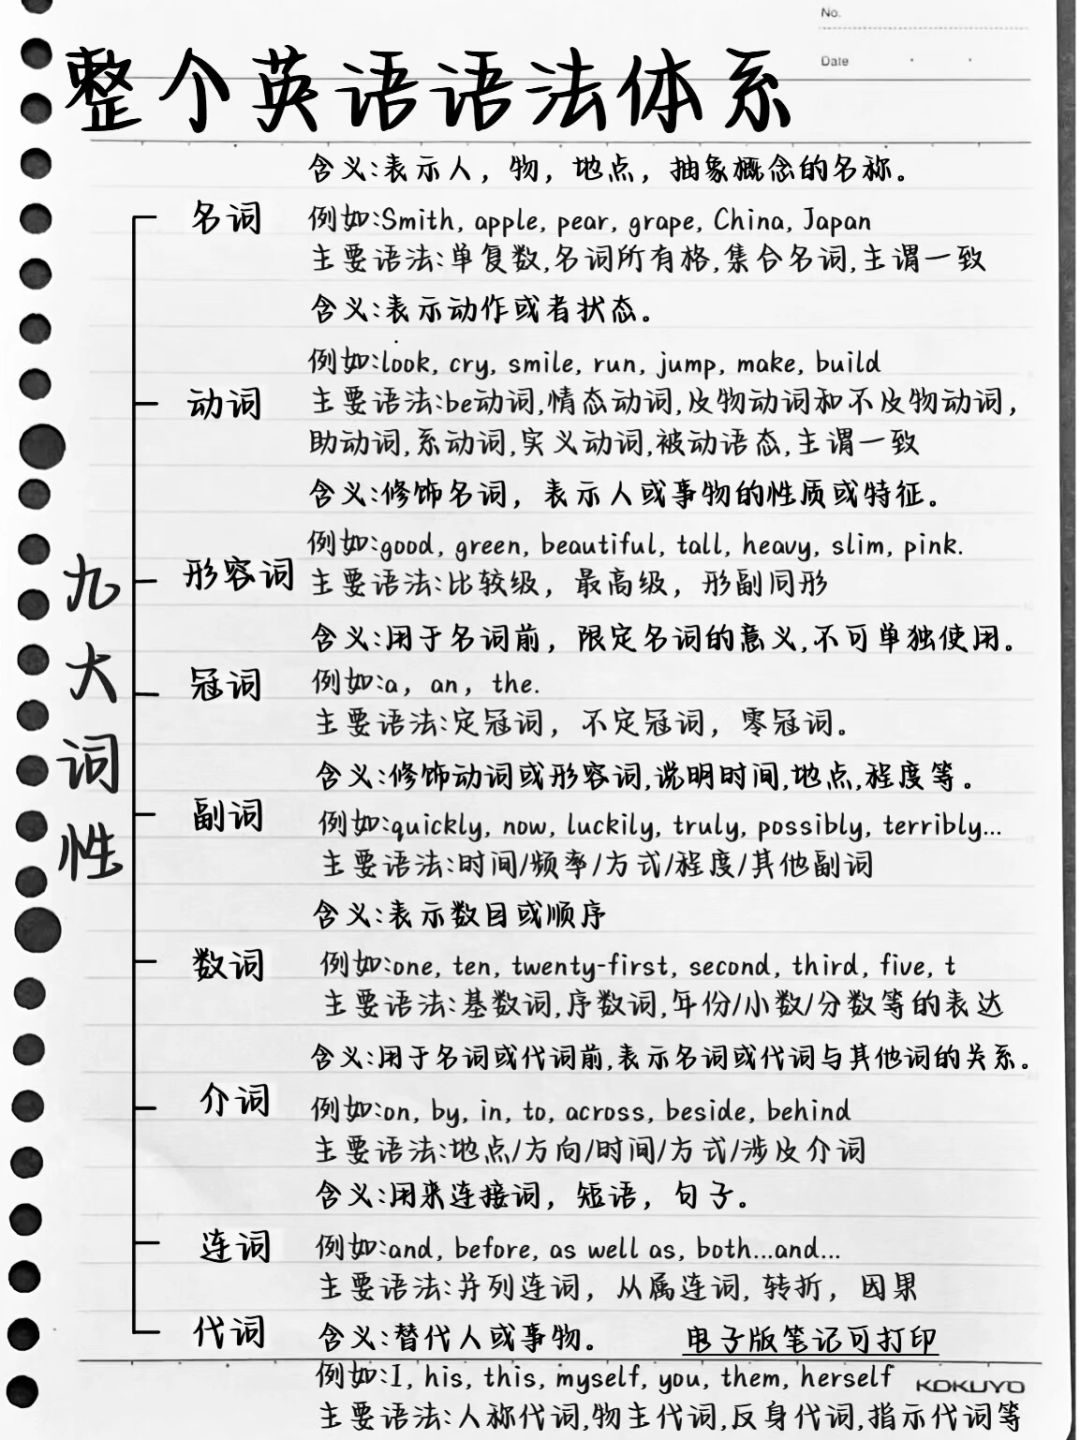 No.
Date
整个英语语法体系
九大词性
含义:表示人，物，地点，抽象概念的名称。
名词
例如:Smith, apple, pear, grape, China, Japan
主要语法:单复数,名词所有格,集合名词,主谓一致
含义:表示动作或者状态。
例如:look, cry, smile, run, jump, make, build
动词
主要语法:be动词,情态动词,及物动词和不及物动词,
助动词,系动词,实义动词,被动语态,主谓一致
含义:修饰名词，表示人或事物的性质或特征。
例如:good, green, beautiful, tall, heavy, slim, pink.
形容词
主要语法:比较级，最高级，形副同形
含义:用于名词前，限定名词的意义,不可单独使用。
冠词
例如:a, an, the.
主要语法:定冠词，不定冠词，零冠词。
含义:修饰动词或形容词,说明时间,地点,程度等。
副词
例如:quickly, now, luckily, truly, possibly, terribly...
主要语法:时间/频率/方式/程度/其他副词
含义:表示数目或顺序
数词
例如:one, ten, twenty-first, second, third, five, t
主要语法:基数词,序数词,年份/小数/分数等的表达
含义:用于名词或代词前,表示名词或代词与其他词的关系。
介词
例如:on, by, in, to, across, beside, behind
主要语法:地点/方向/时间/方式/涉及介词
含义:用来连接词，短语，句子。
连词
例如:and, before, as well as, both...and...
主要语法:并列连词，从属连词, 转折，因果
代词
含义:替代人或事物。
电子版笔记可打印
例如:I, his, this, myself, you, them, herself
KOKUYO
主要语法:人称代词,物主代词,反身代词,指示代词等